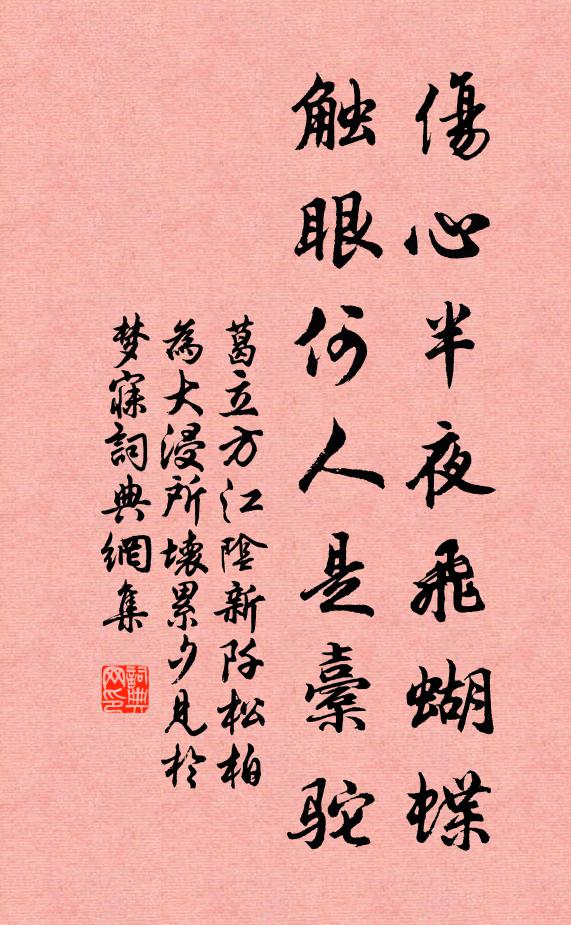 傷心半夜飛蝴蝶
触眼何人是橐駝
葛立方江陰新阡松柏
為大浸所壊累夕見於
梦寐詞典網集
詞典
网印